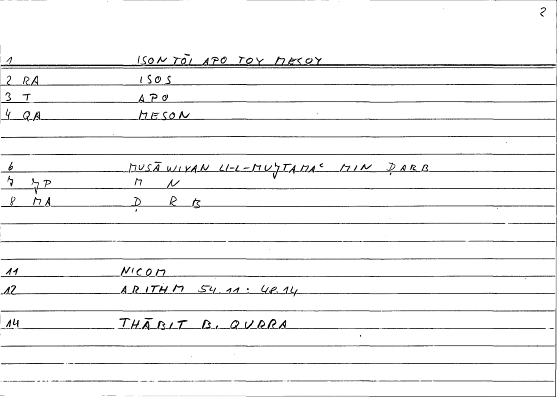 2
1 ISON TŌI APO TOY MESOY
2 RA ISOS
3 T APO
4 QA MESON
6 MUSĀWIYAN LI-L-MUǦTAMAʿ MIN ḌARB
7 ǦP M N
8 MA Ḍ R B
11 NICOM
12 ARITHM 54.11 : 48.14
14 THĀBIT B. QURRA